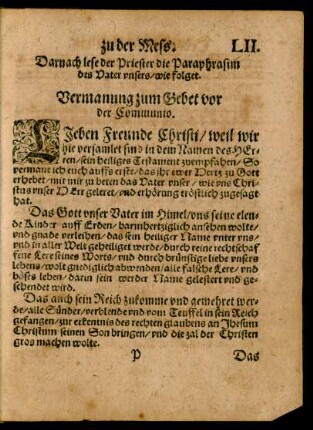 zu der Mess. LII.
Darnach lese der Priester die Paraphrasim
des Vater vnsers/wie folget.
Vermanung zum Gebet vor
der Communio.
LJeben Freunde Christi/weil wir
hie versamlet sind in dem Namen des HEr-
ren/sein heiliges Testament zuempfahen/So
vermane ich euch auffs erste/das jhr ewer Hertz zu Gott
erhebet/mit mir zu beten das Vater vnser/wie vns Chri-
stus vnser HErr geleret/vnd erhörung tröstlich zugesagt
hat.
Das Gott vnser Vater im Himel/vns seine elen-
de Kinder auff Erden/barmhertziglich ansehen wolte/
vnd gnade verleihen/das sein heiliger Name vnter vns/
vnd in aller Welt geheiliget werde/durch reine rechtschaf-
fene Lere seines Worts/vnd durch brünstige liebe vnsers
lebens/wolt gnediglich abwenden/alle falsche Lere/vnd
böses leben/darin sein werder Name gelestert vnd ge-
schendet wird.
Das auch sein Reich zukomme vnd gemehret wer-
de/alle Sünder/verblende vnd vom Teuffel in sein Reich
gefangen/zur erkentnis des rechten glaubens an Jhesum
Christum seinen Son bringen/vnd die zal der Christen
gros machen wolte.
P Das